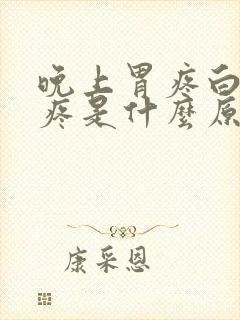 晚上胃疼白
疼是什麼原
康采恩